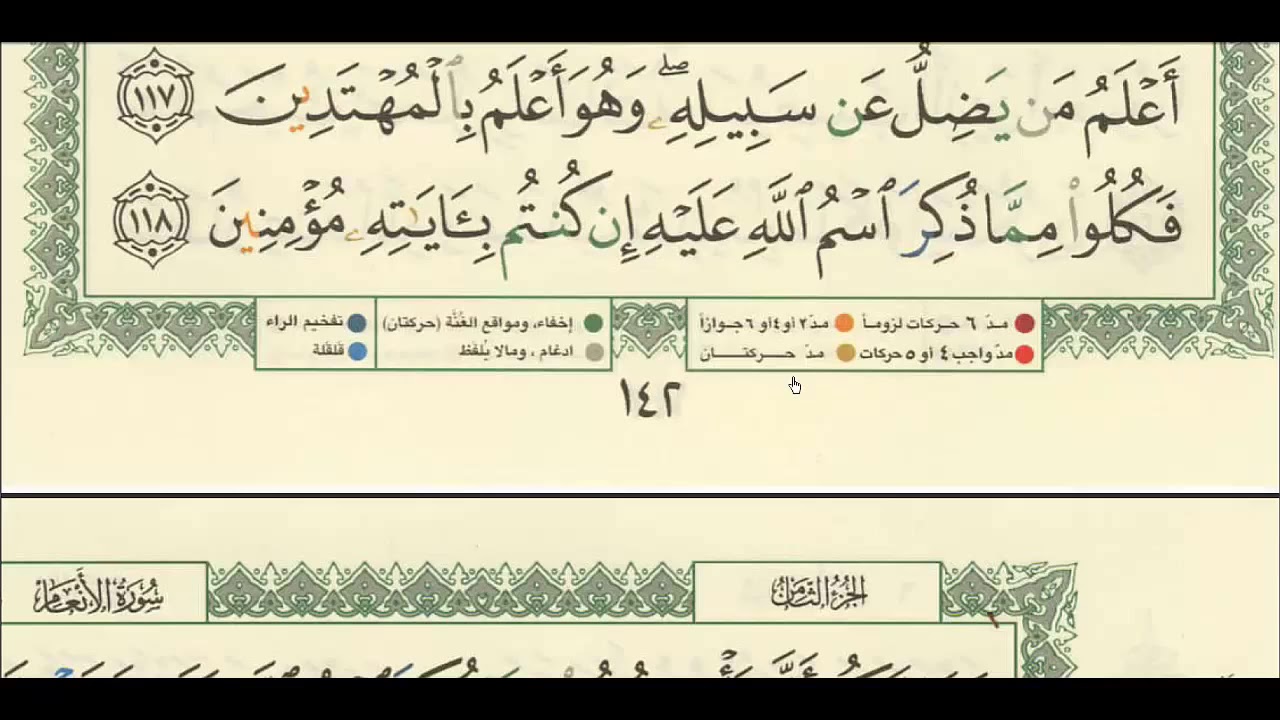 أَعْلَمُ مَن يَضِلُّ عَن سَبِيلِهِۦ ۖ وَهُوَ أَعْلَمُ بِٱلْمُهْتَدِينَ ١١٧
فَكُلُوا۟ مِمَّا ذُكِرَ ٱسْمُ ٱللَّهِ عَلَيْهِ إِن كُنتُم بِـَٔايَـٰتِهِۦ مُؤْمِنِينَ ١١٨
مدّ ٦ حركات لزوماً مدّ ٢ أو ٤ أو ٦ جوازاً
مدّ واجب ٤ أو ٥ حركات مدّ حركتان
إخفاء، ومواقع الغُنَّة (حركتان) تفخيم الراء
ادغام ، ومالا يُلفَظ قلقلة
١٤٢
الجُزْءُ الثَّامِنُ سُورَةُ الأَنْعَامِ